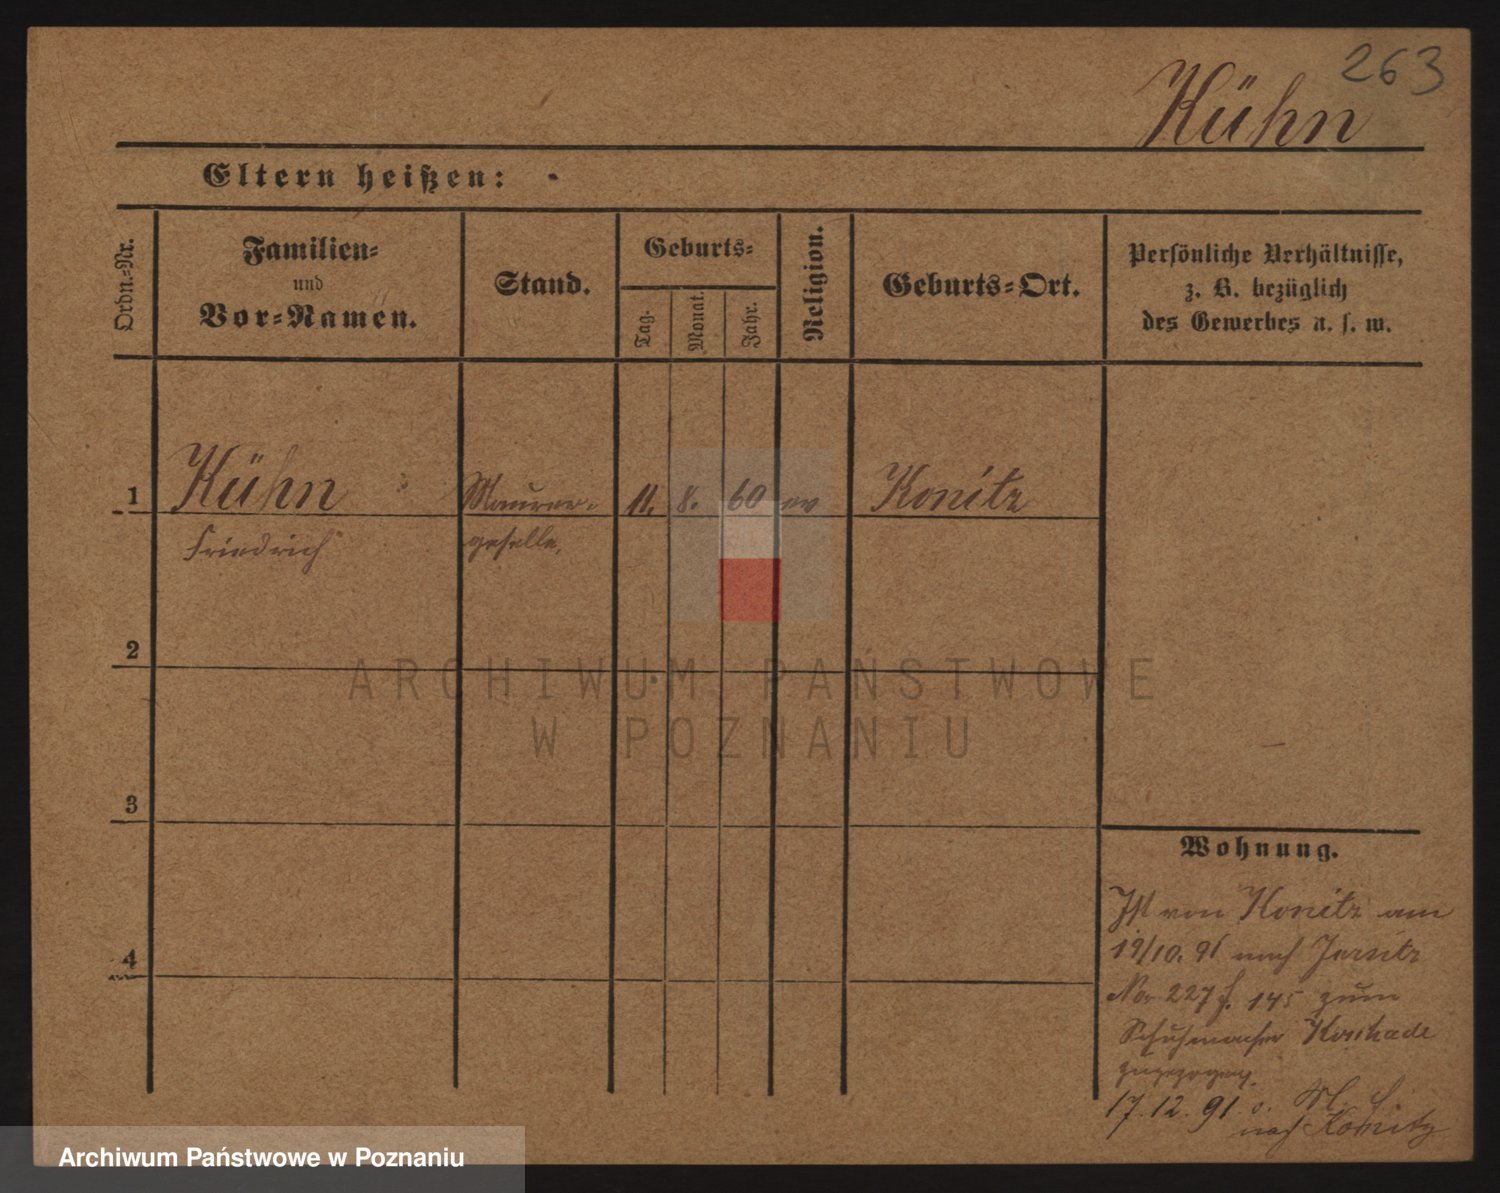 263
Kühn
Eltern heißen:
Ordn.-Nr.
Familien-
und
Vor-Namen.
Stand.
Geburts-
Tag.
Monat.
Jahr.
Religion.
Geburts-Ort.
Persönliche Verhältnisse,
z. B. bezüglich
des Gewerbes u. s. w.
1 Kühn Maurer- 11. 8. 60 ev Konitz
Friedrich geselle.
2
3
4
ARCHIWUM PAŃSTWOWE
W POZNANIU
Wohnung.
Ist von Konitz am
19/10. 91 nach Jersitz
No 227 f. 145 zum
Schuhmacher
zugezogen.
17.12.91
nach Konitz
Archiwum Państwowe w Poznaniu